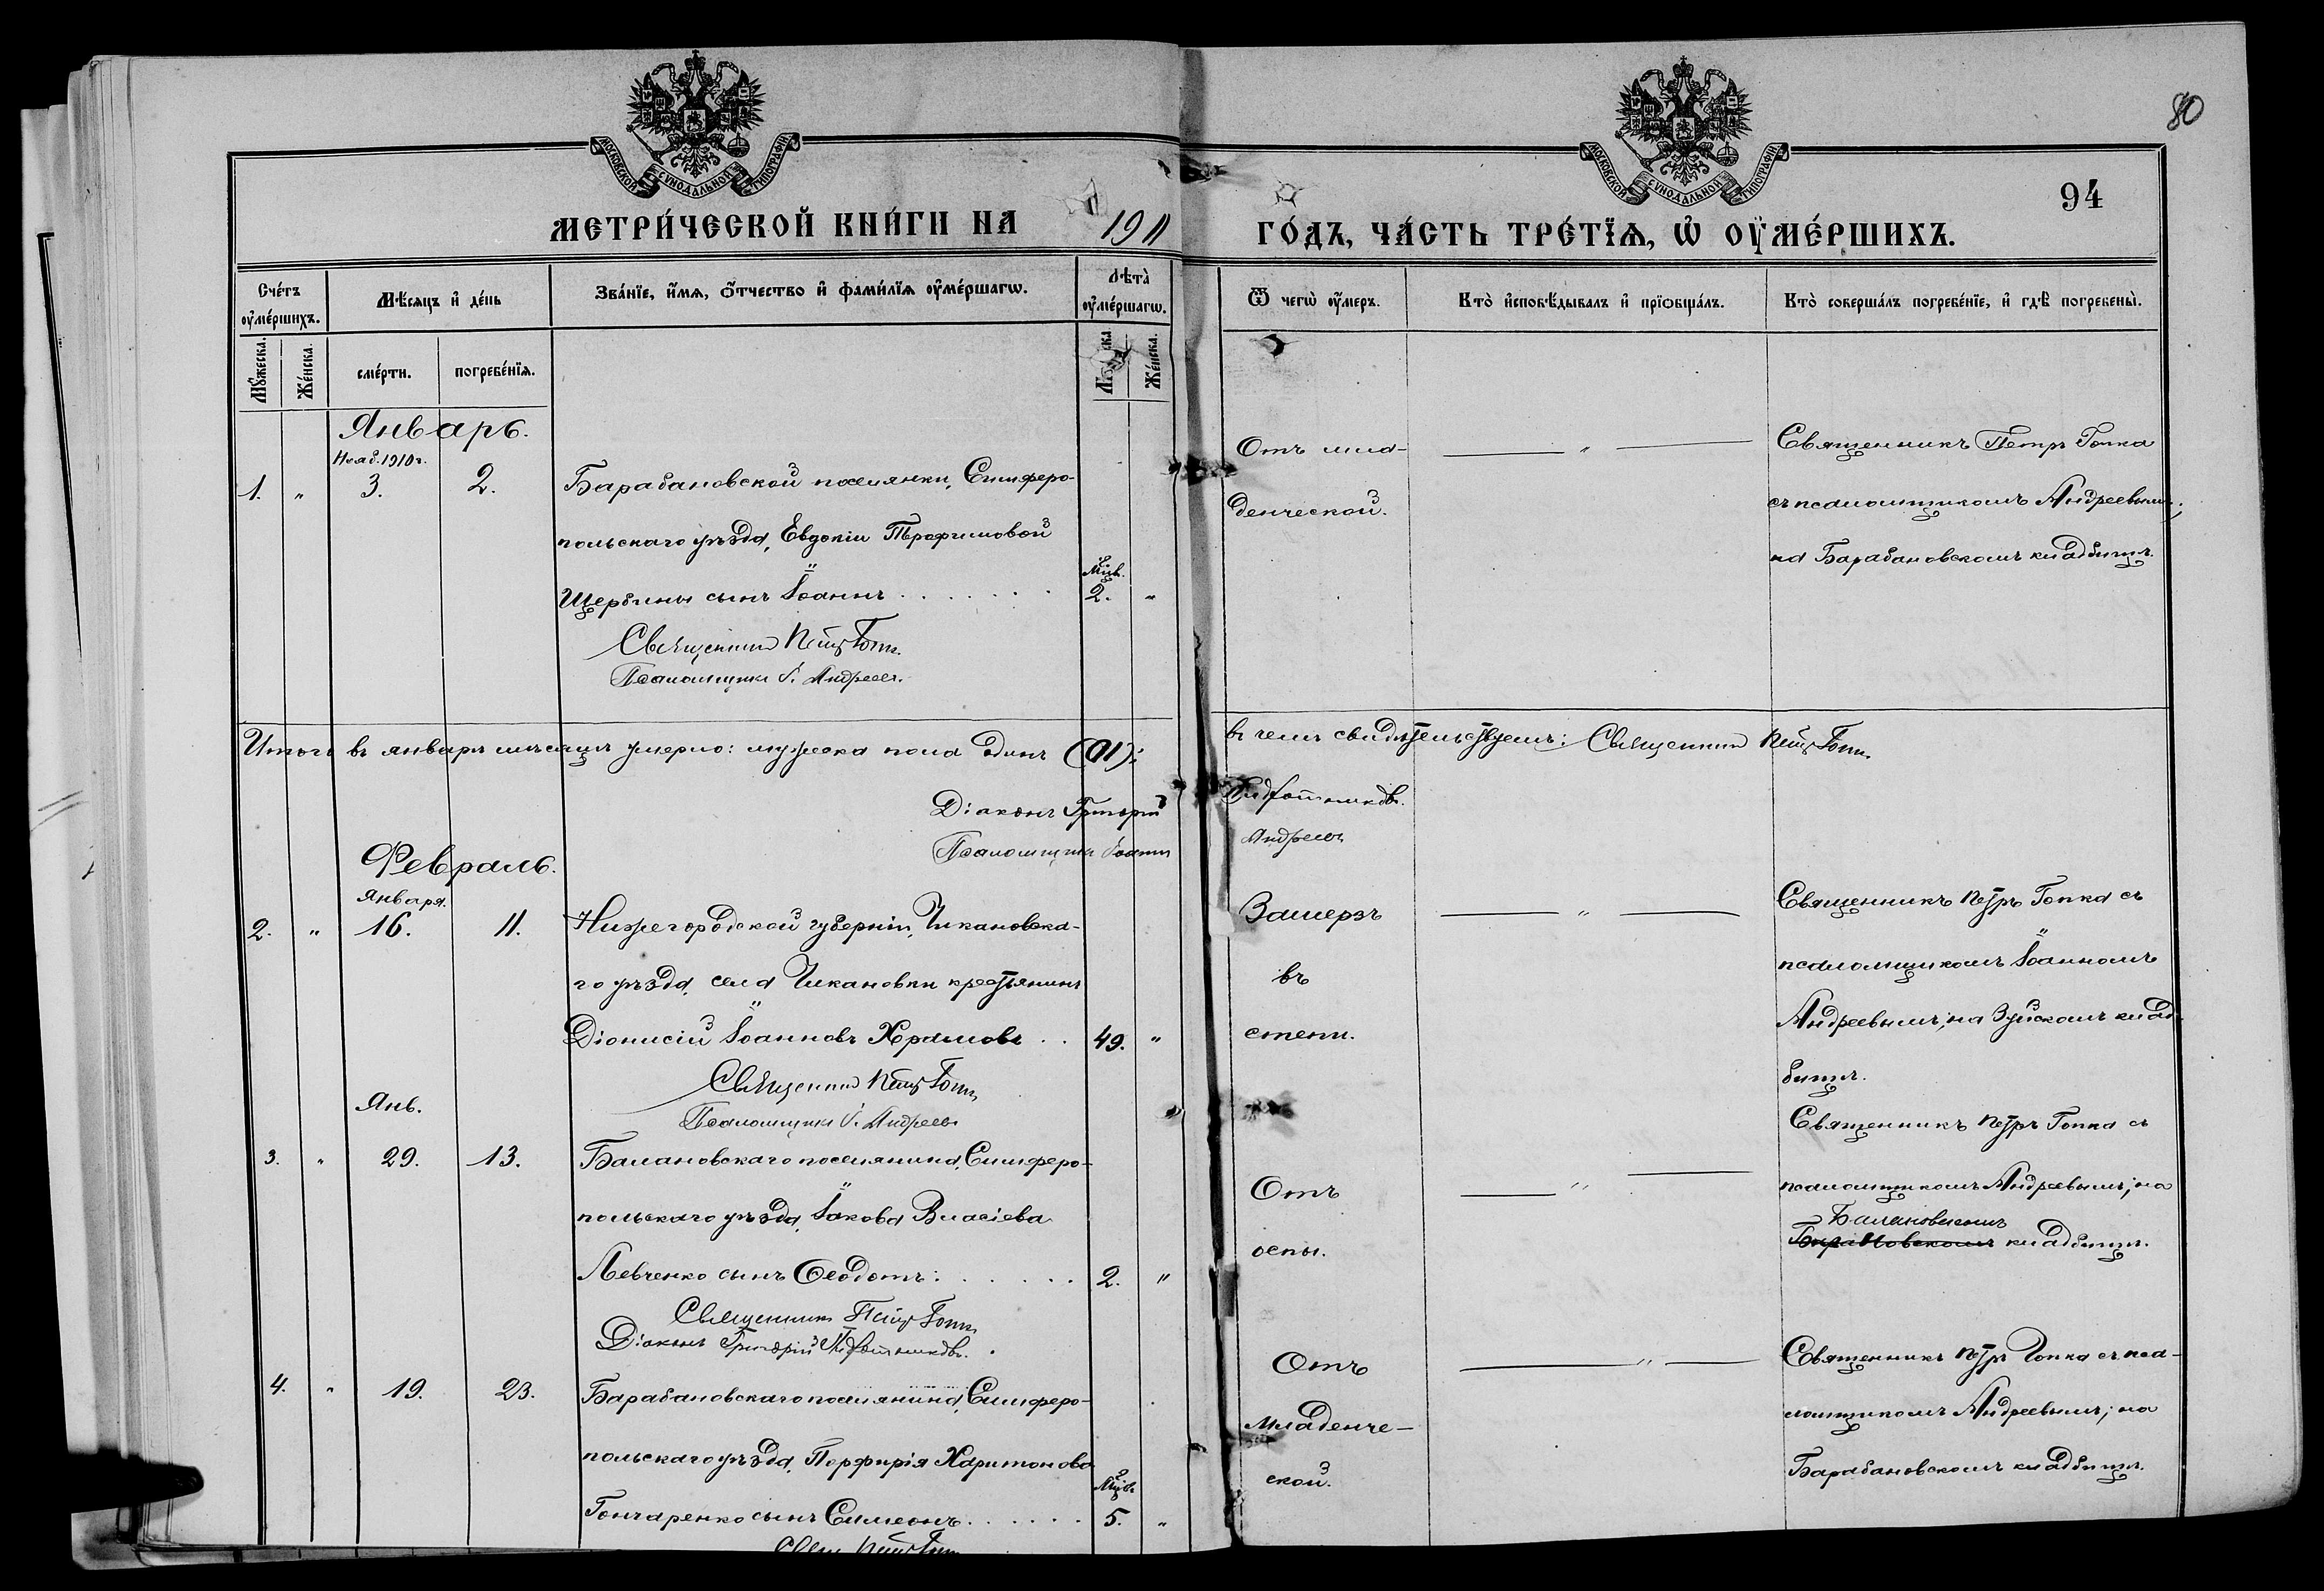 МОСКОВСКОЙ СѴНОДАЛЬНОЙ ТИПОГРАФІИ
МОСКОВСКОЙ СѴНОДАЛЬНОЙ ТИПОГРАФІИ
80
94
МЕТРИ́ЧЕСКОЙ КНИ́ГИ НА 1911 ГО́ДЪ, ЧА́СТЬ ТРЕ́ТІѦ, Ѡ҆ ОУ҆МЕ́РШИХЪ.
Сче́тъ оу҆ме́ршихъ.
Мѣ́сяцъ и҆ де́нь
Зва́нїе, и҆́мя, ѻ҆́тчество и҆ фами́лїя оу҆ме́ршагѡ.
Лѣта̀ оу҆ме́ршагѡ.
Ѿ чегѡ̀ оу҆́меръ.
Кто̀ и҆сповѣ́дывалъ и҆ прїѡбща́лъ.
Кто̀ соверша́лъ погребе́нїе, и҆ гдѣ̀ погребены̀.
Мꙋ́жеска.
Же́нска.
сме́рти.
погребе́нїя.
Же́нска.
Январь.
Нояб. 1910 г.
1. " 3. 2. Барабановской поселянки, Симферо-
польскаго уѣзда, Евдокіи Трофимовой
Щербины сынъ Іоаннъ . . . . . . Мѣс. 2. "
Священникъ Петръ Гопка
Псаломщикъ І. Андреевъ.
Отъ мла-
денческой.
"
Священникъ Петръ Гопка
съ псаломщикомъ Андреевымъ;
на Барабановскомъ кладбищѣ.
Итого въ январѣ мѣсяцѣ умерло: мужеска пола одинъ (01);
въ чемъ свидѣтельствуемъ: Священникъ Петръ Гопка
Діаконъ Григорій
Псаломщикъ Іоаннъ Андреевъ
Февраль.
Января.
2. " 16. 11. Нижегородской губерніи, Чикановска-
го уѣзда, села Чикановки крестьянинъ
Діонисій Іоанновъ Храмовъ . . 49. "
Священникъ Петръ Гопка
Псаломщикъ І. Андреевъ
Замерзъ
въ
степи.
"
Священникъ Петръ Гопка съ
псаломщикомъ Іоанномъ
Андреевымъ; на Зуйскомъ клад-
бищѣ.
Янв.
3. " 29. 13. Балановскаго поселянина, Симферо-
польскаго уѣзда, Іакова Власіева
Левченко сынъ Ѳеодотъ: . . . . . 2. "
Священникъ Петръ Гопка
Діаконъ Григорій
Отъ
оспы.
"
Священникъ Петръ Гопка съ
псаломщикомъ Андреевымъ; на
Балановскомъ
кладбищѣ.
4. " 19. 23. Барабановскаго поселянина, Симферо-
польскаго уѣзда, Порфирія Харитонова
Гончаренко сынъ Симеонъ . . . . . . Мѣс. 5. "
Свящ. Петръ Гопка
Отъ
младенче-
ской.
"
Священникъ Петръ Гопка съ пса-
ломщикомъ Андреевымъ; на
Барабановскомъ кладбищѣ.